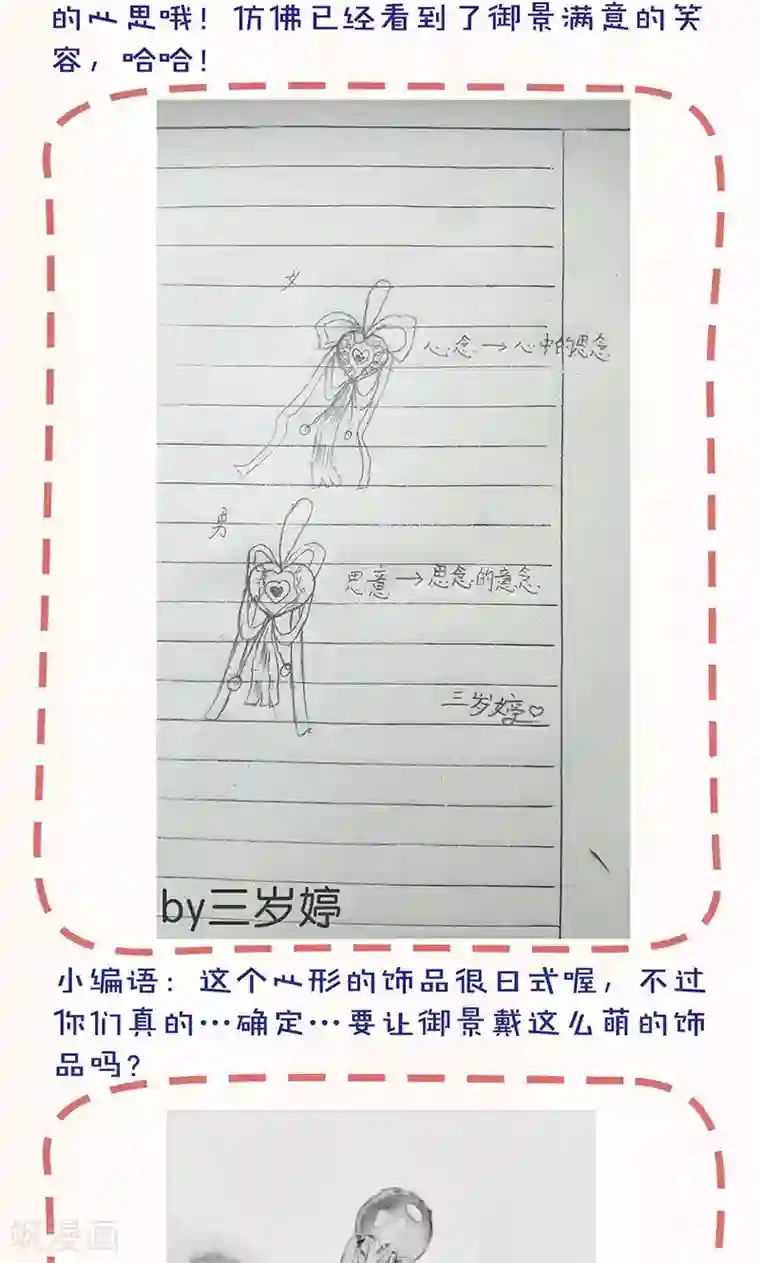 的心思哦！仿佛已经看到了御景满意的笑
容，哈哈！
女
心念→心中的思念
男
思意→思念的意念
三岁婷♡
by三岁婷
小编语：这个心形的饰品很日式喔，不过
你们真的…确定…要让御景戴这么萌的饰
品吗？
漫画